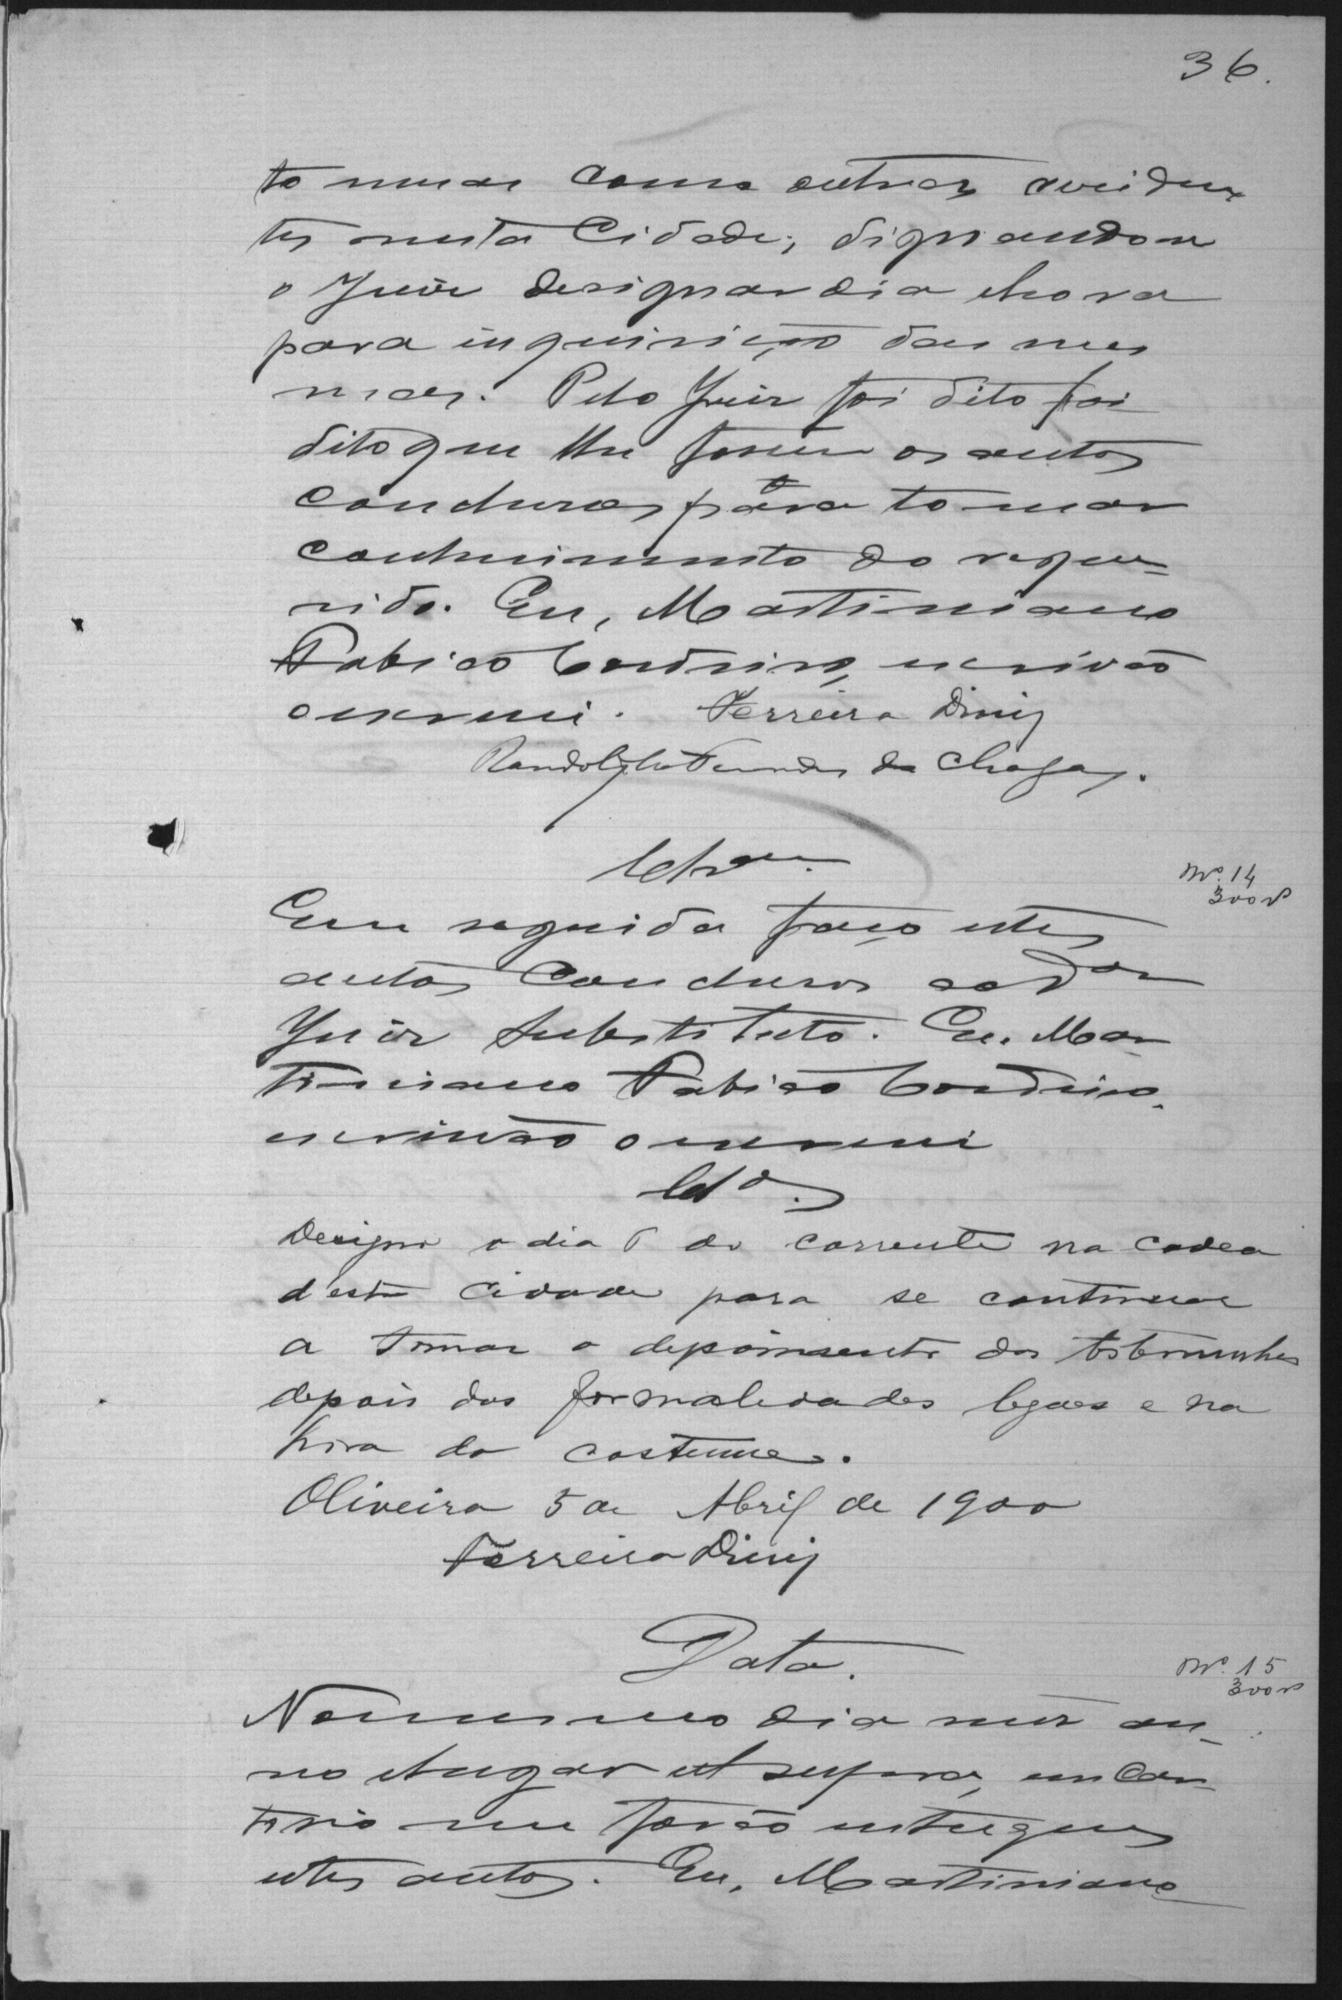 36.
to nesas como outras residen
tes nesta Cidade; dignando se
o Juiz designar dia e hora
para inquirição das mes
mas. Pelo Juiz foi dito foi
dito que lhe fossem os autos
conclusos para tomar
conhecimento do reque-
rido. Eu, Martiniano
Fabião Cordeiro, escrivão
o escrevi. Ferreira Diniz
Randolpho Fernandes das Chagas.
Clsam.
Nº. 14
300 rs
Em seguida faço estes
autos conclusos ao Dor
Juiz Substituto. Eu, Mar
tiniano Fabião Cordeiro,
escrivão o escrevi
Clos.
Designo o dia 6 do corrente na cadea
desta cidade para se continuar
a tomar o depoimento das testemunhas
depois das formalidades legaes e na
hora do costume.
Oliveira 5 de Abril de 1900
Ferreira Diniz
Data.
Nº. 15
300 rs
No mesmo dia mez an-
no e lugar ut supra, em Car-
torio me forão entregues
estes autos. Eu, Martiniano